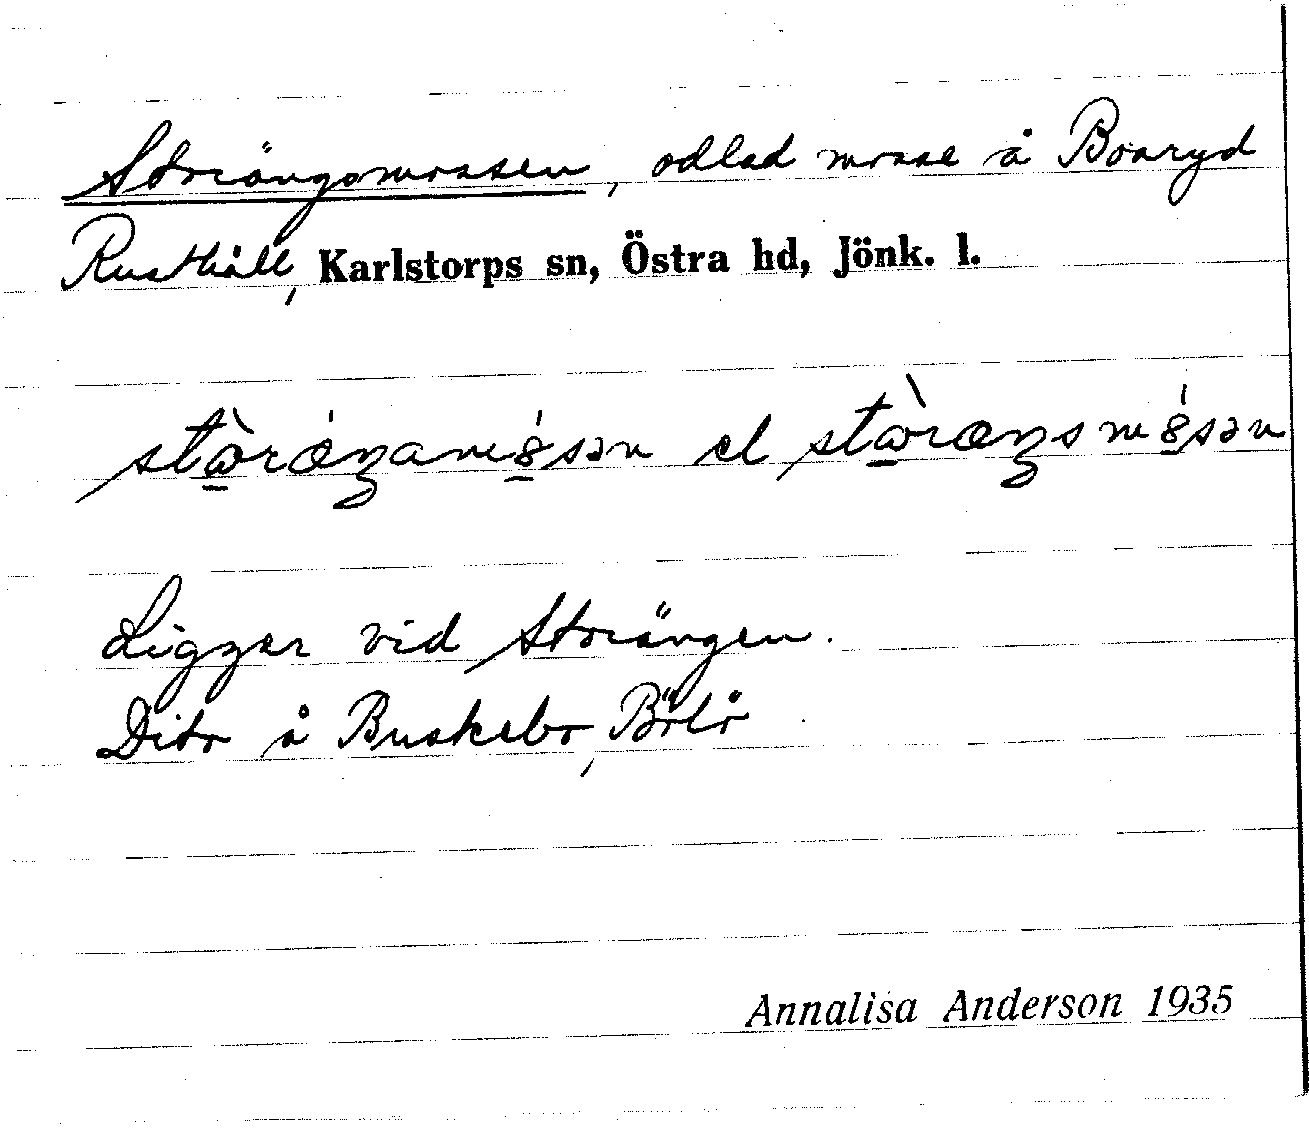 Storängsmossen, odlad mosse å Boaryd
Rusthåll, Karlstorps sn, Östra hd, Jönk. l.
el
Ligger vid Storängen.
Dito å Buskebo, Bölö
Annalisa Anderson 1935